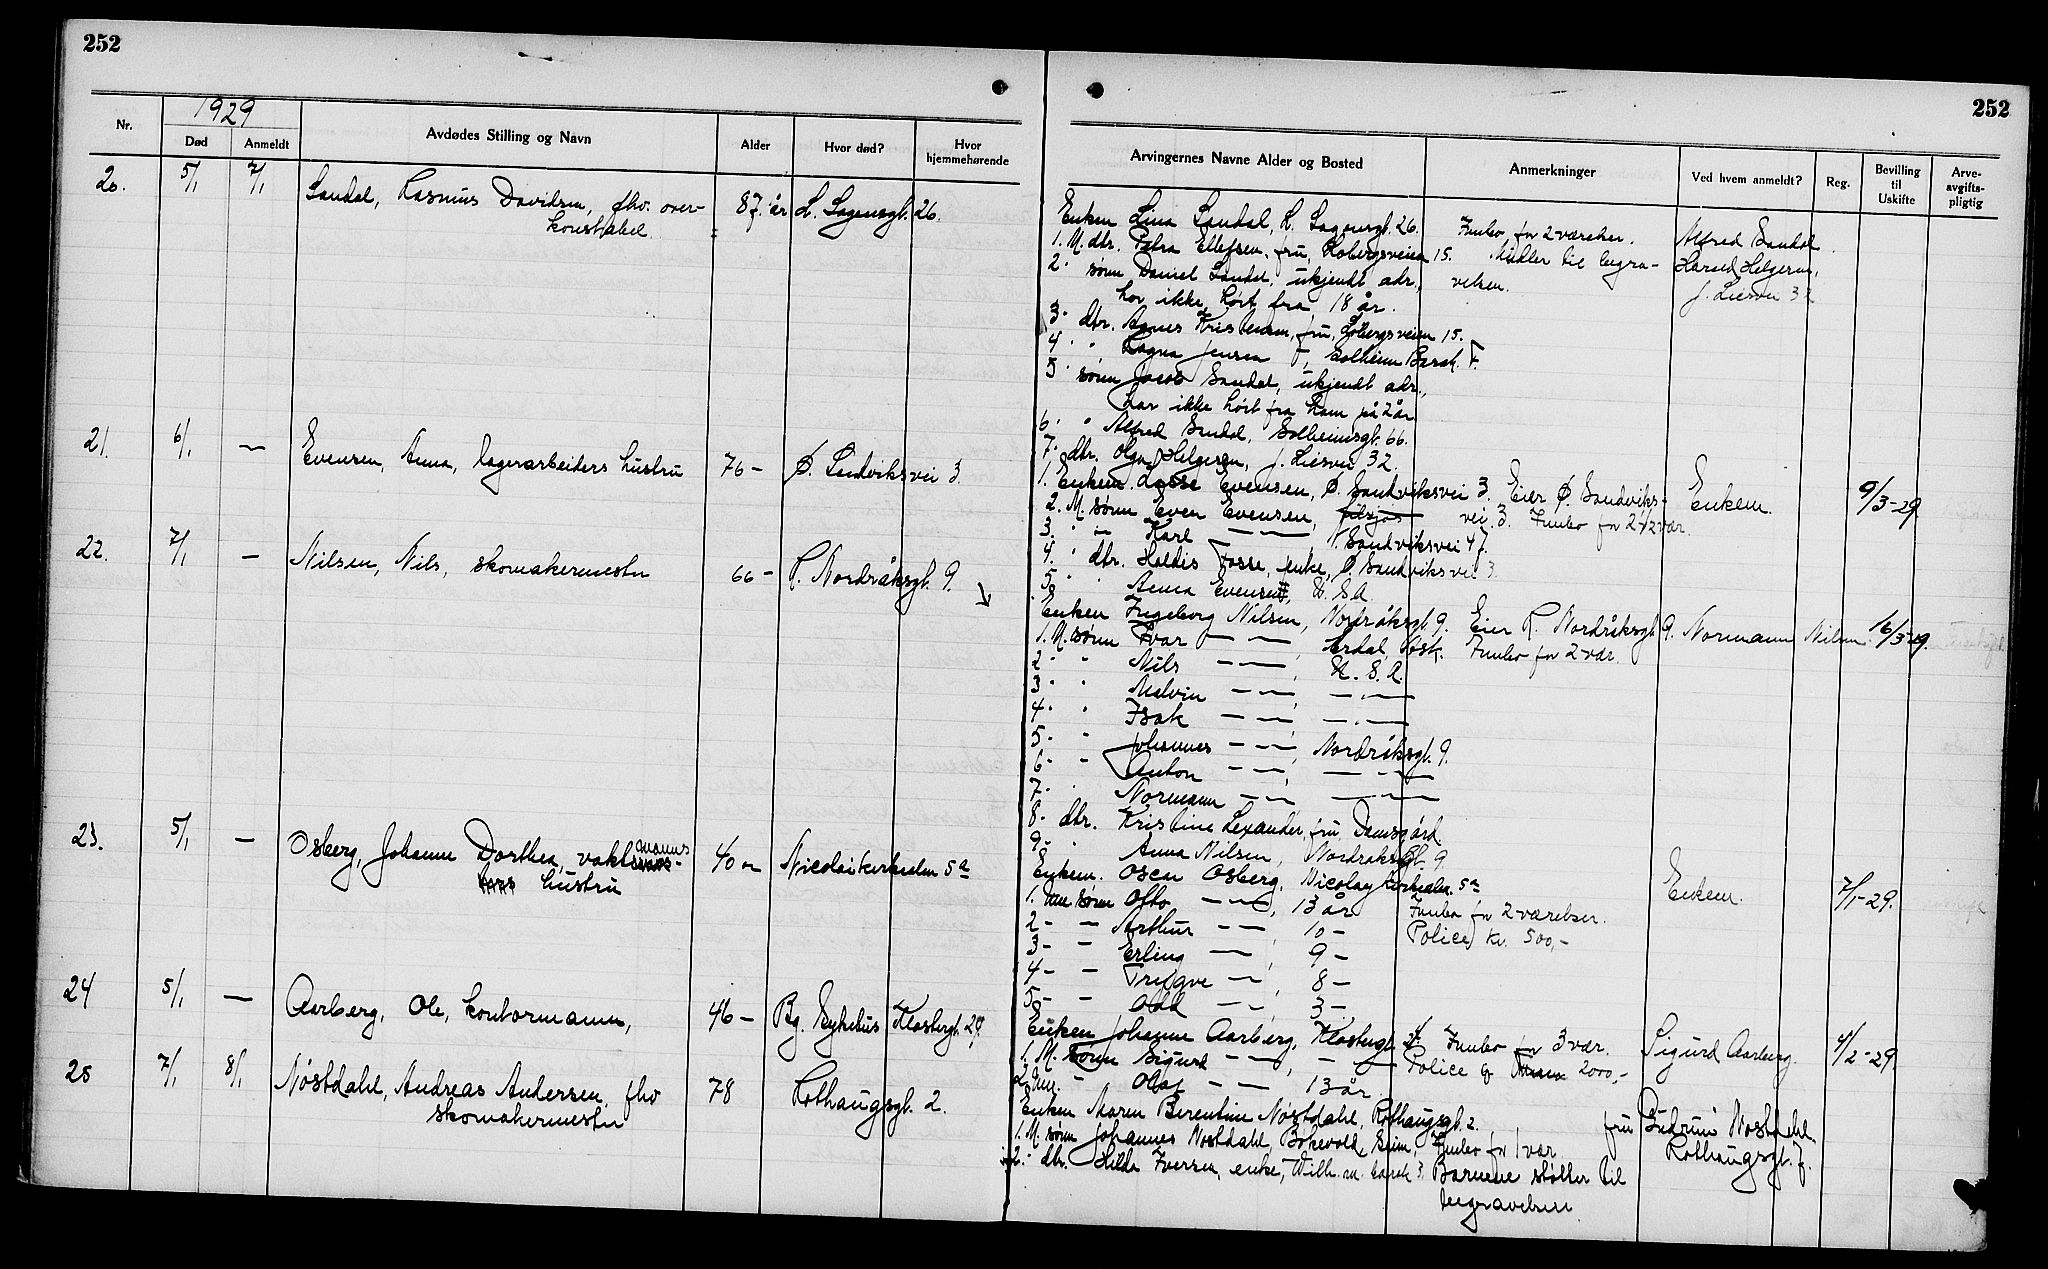 252
252
1929
Nr.
Død
Anmeldt
Avdødes Stilling og Navn
Alder
Hvor død?
Hvor hjemmehørende
Arvingernes Navne Alder og Bosted
Anmerkninger
Ved hvem anmeldt?
Reg.
Bevilling til Uskifte
Arve-avgifts-pligtig
20. 5/1 7/1 Sandal, Rasmus Davidsen, fhv. over-
konstabel
87 år L. Sagensgt. 26.
Enken Lina Sandal, L. Sagensgt. 26.
1. M. dtr. Petra Ellefsen, fru, Løbergsveien 15.
2. sønn Daniel Sandal, ukjendt adr.,
har ikke hørt fra 18 år.
3. dtr. Agnes Kristensen, fru, Løbergsveien 15.
4. " Ragna Jensen — Solheim Barak. F.
5. sønn Jacob Sandal, ukjendt adr.,
har ikke hørt fra ham på 2 år
6. " Alfred Sandal, Solheimsgt. 66.
7. dtr. Olga Helgesen, J. Liesvei 32.
Innbo for 2 værelser.
Midler til begra-
velsen.
Alfred Sandal
Harald Helgesen,
J. Liesvei 32
21. 6/1 — Evensen, Anna, lagerarbeiders hustru 76 — Ø. Sandviksvei 3.
1. Enkem. Lasse Evensen, Ø. Sandviksvei 3.
2. M. sønn Even Evensen,
3. " — Karl — — N. Sandviksvei 47.
4. " dtr. Haldis Fosse, enke, Ø. Sandviksvei 3.
5. " " Anna Evensen, U.S.A.
Eier Ø. Sandviks-
vei 3. Innbo for 2 1/2 vær.
Enkem. 9/3-29
22. 7/1 — Nilsen, Nils, skomakermester 66 — R. Nordråksgt. 9.
Enken Ingeborg Nilsen, Nordråksgt. 9.
1. M. sønn Ivar — — , Erdal, Ask.
2. " " Nils — — , U.S.A.
3. " " Malvin — — , — " —
4. " " Isak — — , — " —
5. " " Johannes — — , Nordråksgt. 9.
6. " " Anton — — , — " —
7. " " Normann — — — " —
8. dtr. Kristine Lexander, fru, Damsgård
9. " Anna Nilsen, Nordråksgt. 9
Eier R. Nordråksgt. 9.
Innbo for 2 vær.
Normann Nilsen. 16/3-29.
23. 5/1 — Osberg, Johanne Dorthea, vaktmanns
hustru
40 — Nicolaikirkealm 5a
Enkem. Oscar Osberg, Nicolay kirkealm. 5a
1. um. sønn Otto — — , 13 år
2 - — Arthur — — , 10 -
3 - — Erling — , 9 -
4 - — Trygve — , 8 -
5 - — Odd — , 3 -
Innbo for 2 værelser.
Police kr. 500,-
Enkem. 7/1-29.
24 5/1 — Aarberg, Ole, kontormann, 46 — Bg. Sykehus Klostergt. 29
Enken Johanne Aarberg, Klostergt.
1. M. sønn Sigurd — — , — " —
2. um. " Olaf — — 13 år
Innbo for 3 vær.
Police 2000,-
Sigurd Aarberg. 4/2-29.
25 7/1 8/1 Nøstdahl, Andreas Andersen, fhv
skomakermester
78 Rothaugsgt. 2.
Enken Maren Berentine Nøstdahl, Rothaugsgt. 2.
1. M. sønn Johannes Nøstdahl, Bøkevold, Eeim,
2. " dtr. Hilda Iversen, enke, Wilh. m. barak 3.
Innbo for 1 vær
Barnene støtter til
begravelsen
fru Gudrun Nøstdahl,
Rothaugsgt. 7.